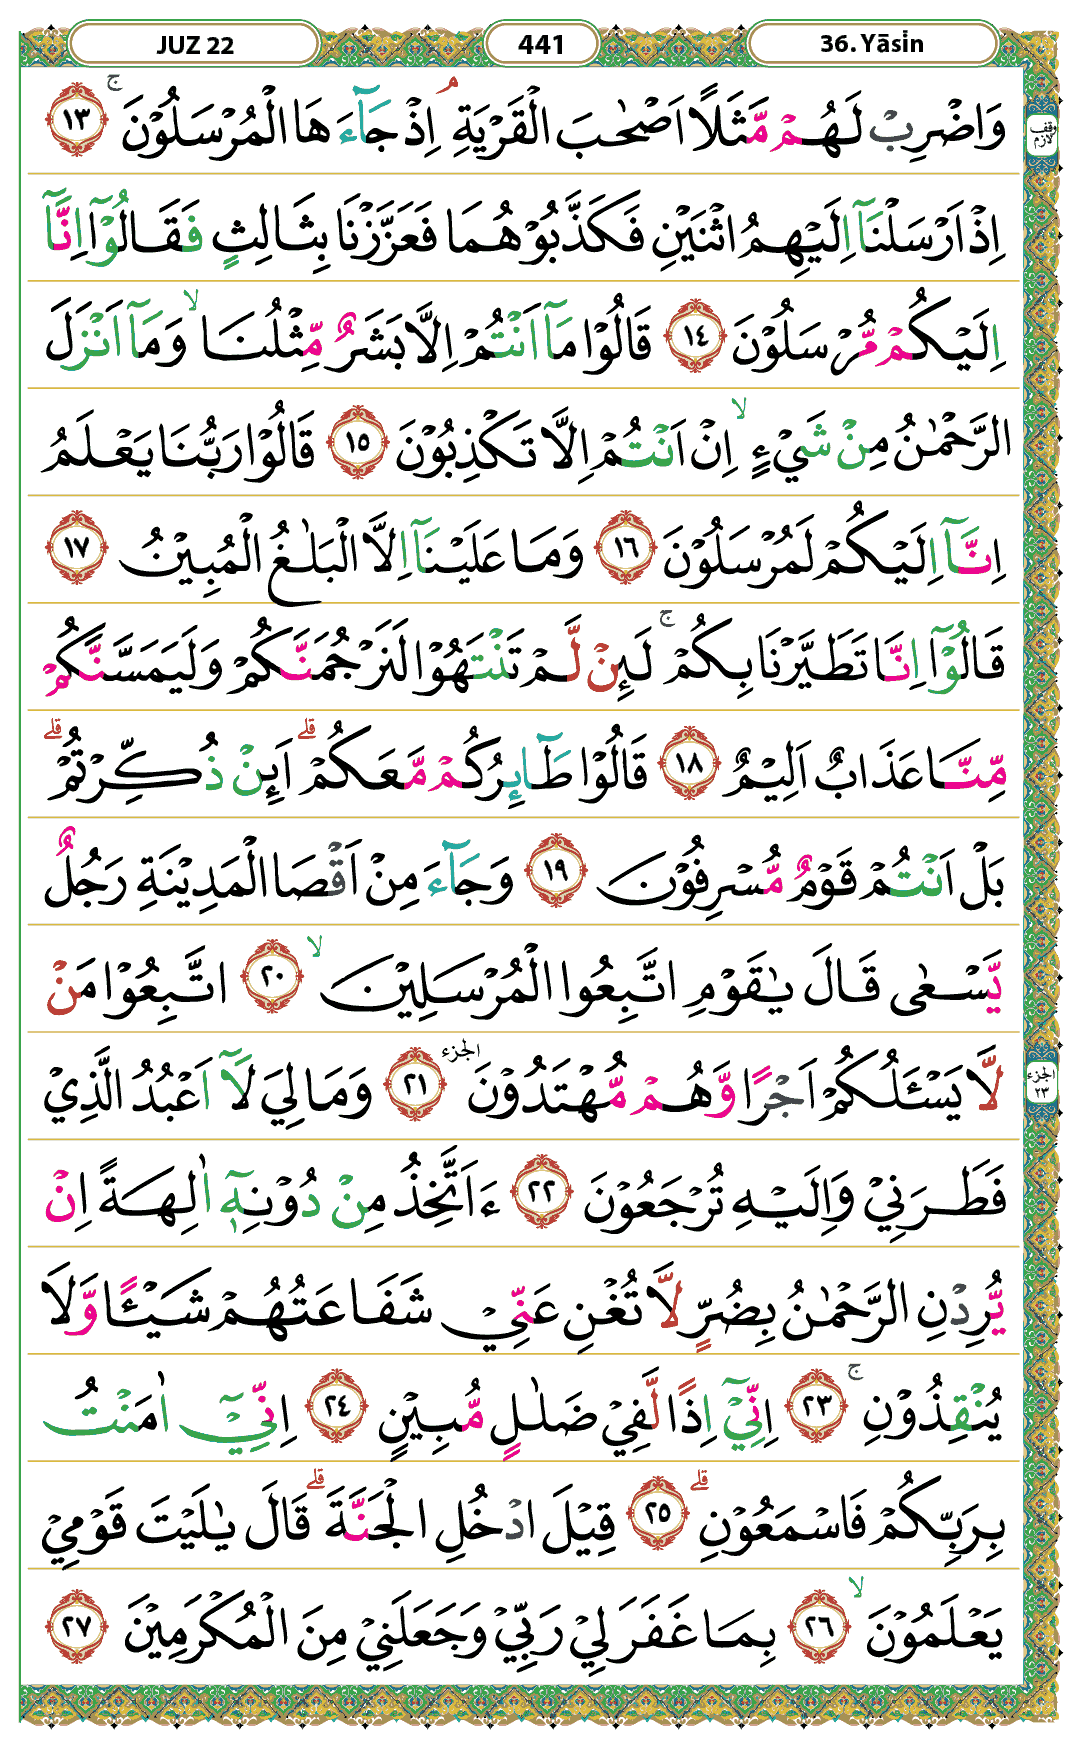 JUZ 22 441 36. Yāsin
وَاضْرِبْ لَهُمْ مَّثَلًا اَصْحٰبَ الْقَرْيَةِۘ اِذْ جَاۤءَهَا الْمُرْسَلُوْنَۚ ١٣
وقف لازم
اِذْ اَرْسَلْنَآ اِلَيْهِمُ اثْنَيْنِ فَكَذَّبُوْهُمَا فَعَزَّزْنَا بِثَالِثٍ فَقَالُوْٓا اِنَّآ
اِلَيْكُمْ مُّرْسَلُوْنَ ١٤ قَالُوْا مَآ اَنْتُمْ اِلَّا بَشَرٌ مِّثْلُنَاۙ وَمَآ اَنْزَلَ
الرَّحْمٰنُ مِنْ شَيْءٍۙ اِنْ اَنْتُمْ اِلَّا تَكْذِبُوْنَ ١٥ قَالُوْا رَبُّنَا يَعْلَمُ
اِنَّآ اِلَيْكُمْ لَمُرْسَلُوْنَ ١٦ وَمَا عَلَيْنَآ اِلَّا الْبَلٰغُ الْمُبِيْنُ ١٧
قَالُوْٓا اِنَّا تَطَيَّرْنَا بِكُمْۚ لَىِٕنْ لَّمْ تَنْتَهُوْا لَنَرْجُمَنَّكُمْ وَلَيَمَسَّنَّكُمْ
مِّنَّا عَذَابٌ اَلِيْمٌ ١٨ قَالُوْا طَاۤىِٕرُكُمْ مَّعَكُمْۗ اَىِٕنْ ذُكِّرْتُمْۗ
بَلْ اَنْتُمْ قَوْمٌ مُّسْرِفُوْنَ ١٩ وَجَاۤءَ مِنْ اَقْصَا الْمَدِيْنَةِ رَجُلٌ
يَّسْعٰى قَالَ يٰقَوْمِ اتَّبِعُوا الْمُرْسَلِيْنَۙ ٢٠ اتَّبِعُوْا مَنْ
لَّا يَسْـَٔلُكُمْ اَجْرًا وَّهُمْ مُّهْتَدُوْنَ الجزء ٢١ وَمَا لِيَ لَآ اَعْبُدُ الَّذِيْ
الجزء ٢٣
فَطَرَنِيْ وَاِلَيْهِ تُرْجَعُوْنَ ٢٢ ءَاَتَّخِذُ مِنْ دُوْنِهٖٓ اٰلِهَةً اِنْ
يُّرِدْنِ الرَّحْمٰنُ بِضُرٍّ لَّا تُغْنِ عَنِّيْ شَفَاعَتُهُمْ شَيْـًٔا وَّلَا
يُنْقِذُوْنِۚ ٢٣ اِنِّيْٓ اِذًا لَّفِيْ ضَلٰلٍ مُّبِيْنٍ ٢٤ اِنِّيْٓ اٰمَنْتُ
بِرَبِّكُمْ فَاسْمَعُوْنِۗ ٢٥ قِيْلَ ادْخُلِ الْجَنَّةَۗ قَالَ يٰلَيْتَ قَوْمِيْ
يَعْلَمُوْنَۙ ٢٦ بِمَا غَفَرَ لِيْ رَبِّيْ وَجَعَلَنِيْ مِنَ الْمُكْرَمِيْنَ ٢٧